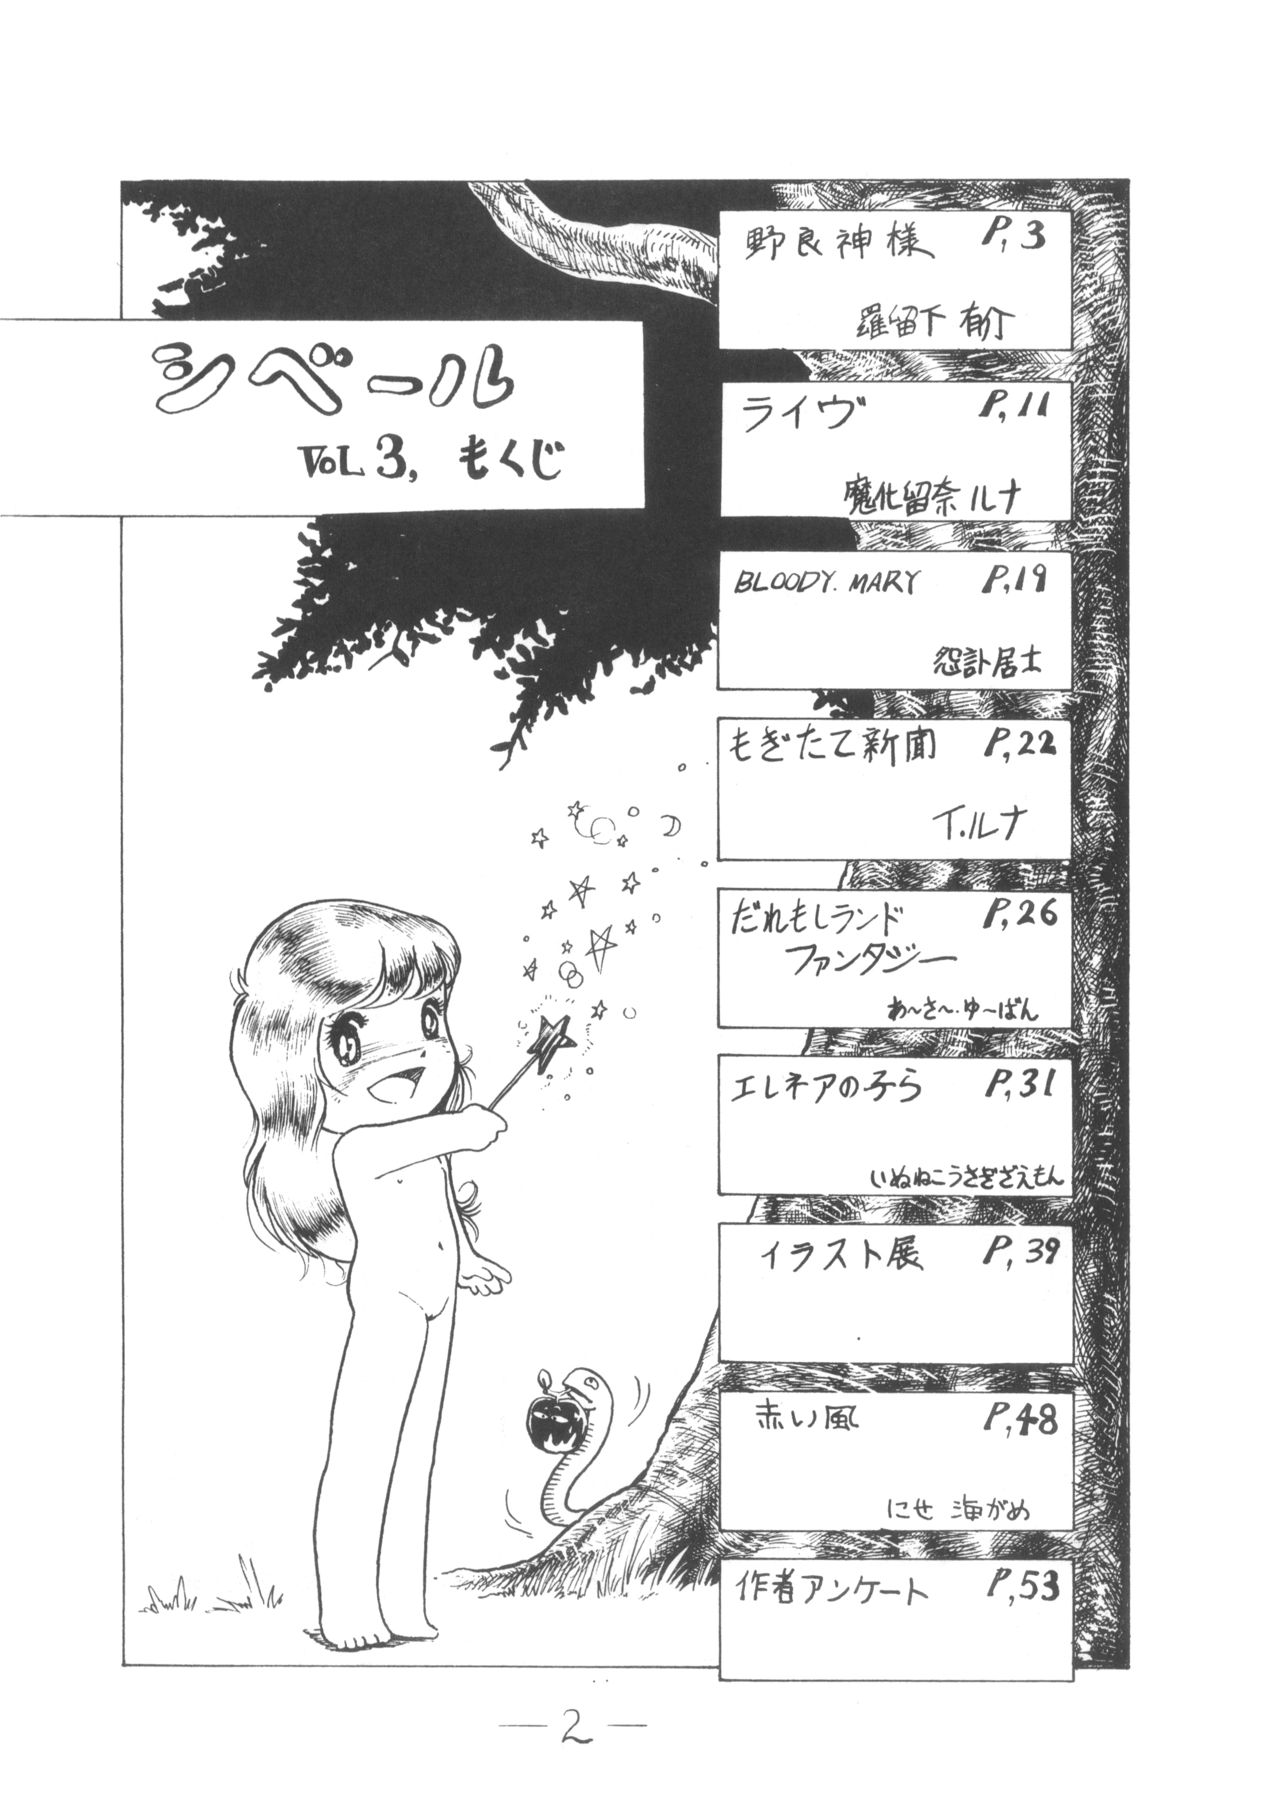 シベール
VOL 3, もくじ
野良神様 P,3
羅留下 有介
ライヴ P,11
魔化留奈 ルナ
BLOODY. MARY P,19
怨訃居士
もぎたて新聞 P,22
イ.ルナ
だれもしランド P,26
ファンタジー
あ〜さ〜.ゆ〜ばん
エレネアの子ら P,31
いぬねこうさぎざえもん
イラスト展 P,39
赤い風 P,48
にせ 海がめ
作者アンケート P,53
—2—